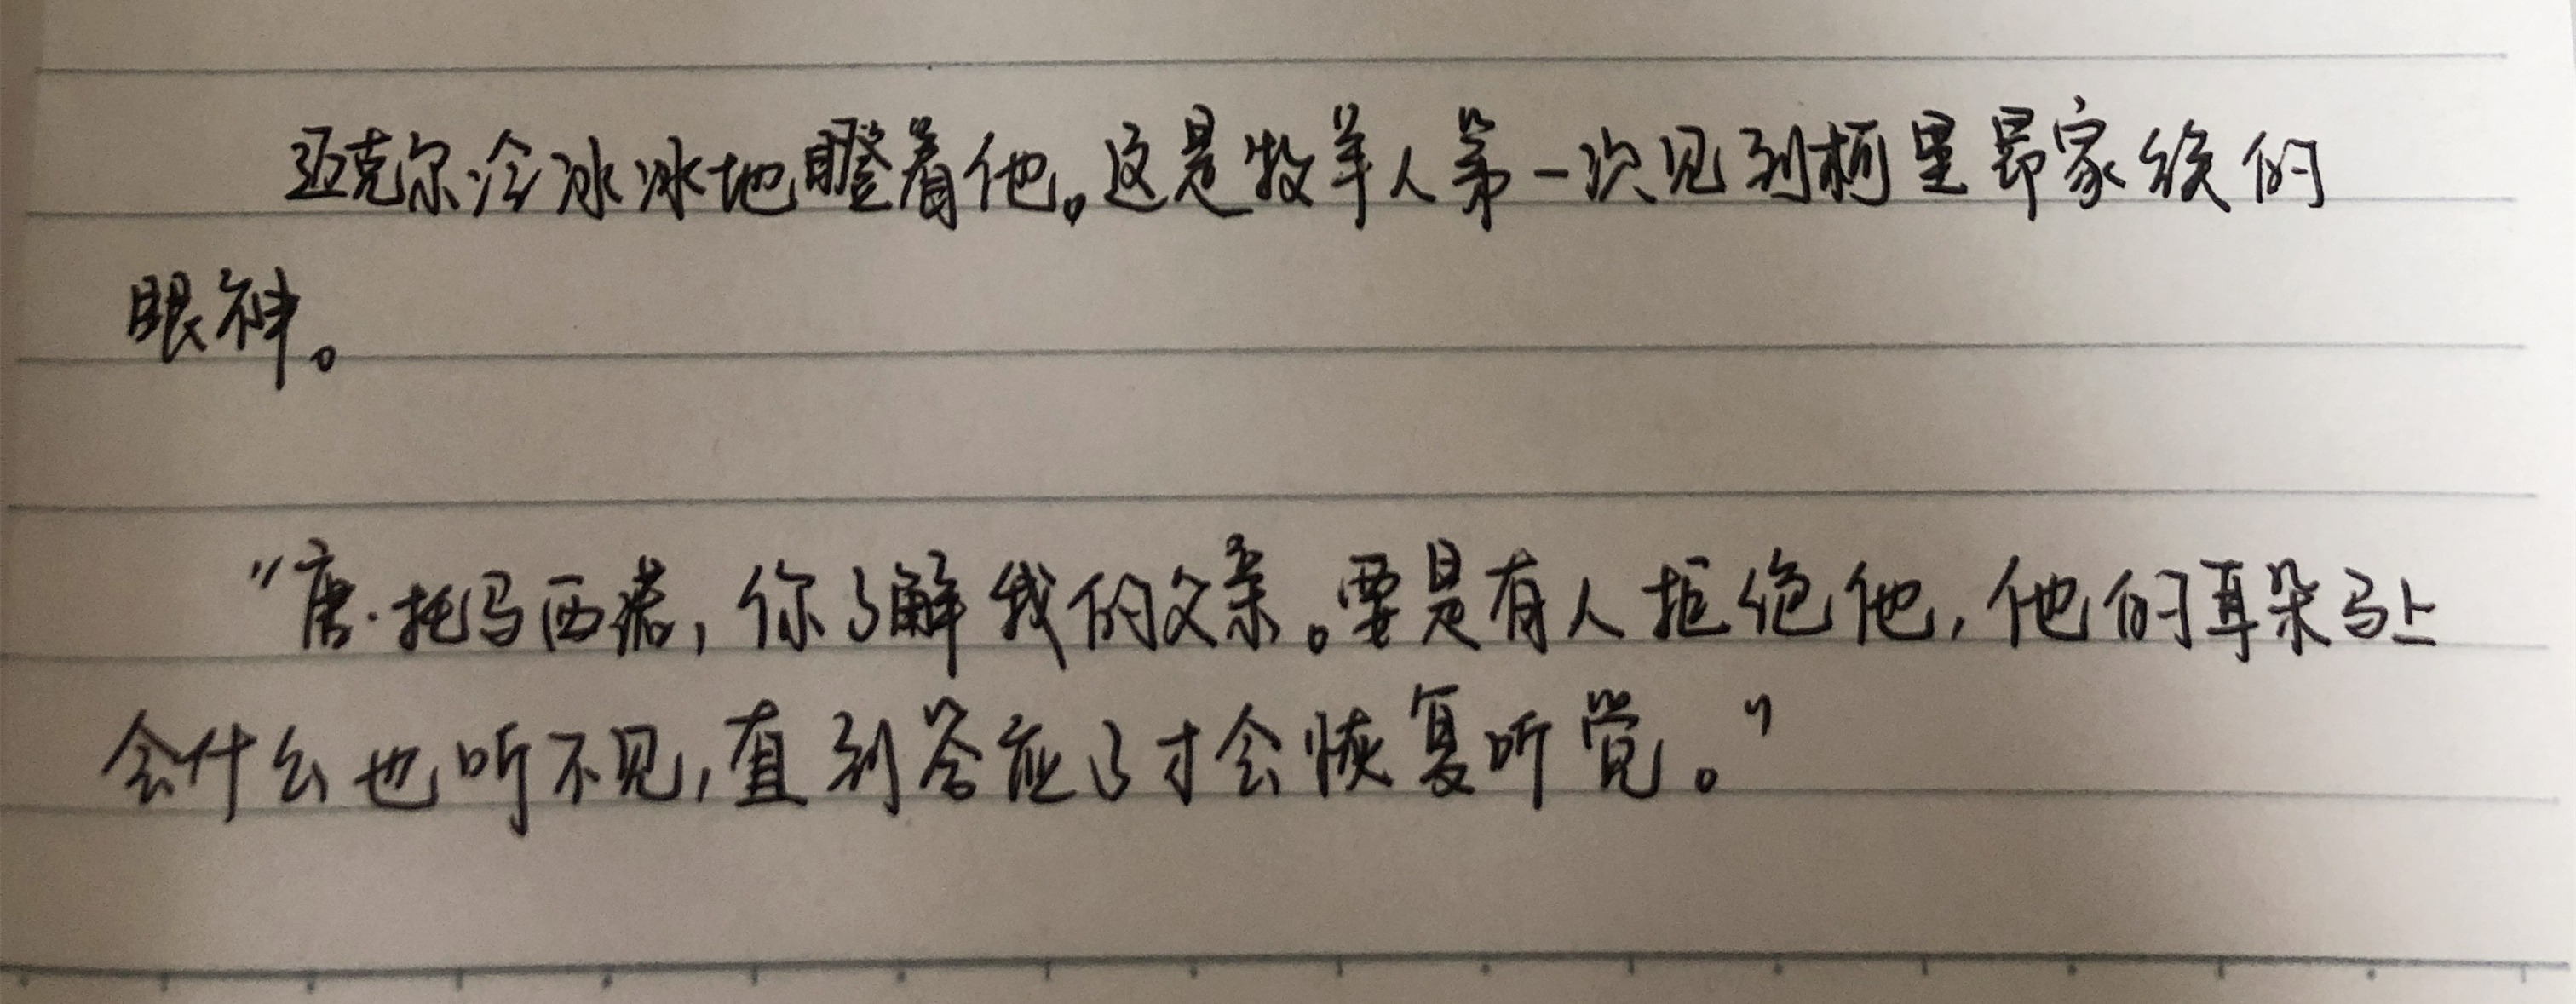 迈克尔冷冰冰地瞪着他。这是牧羊人第一次见到柯里昂家族的
眼神。
“唐·托马西诺，你了解我的父亲。要是有人拒绝他，他的耳朵马上
会什么也听不见，直到答应了才会恢复听觉。”